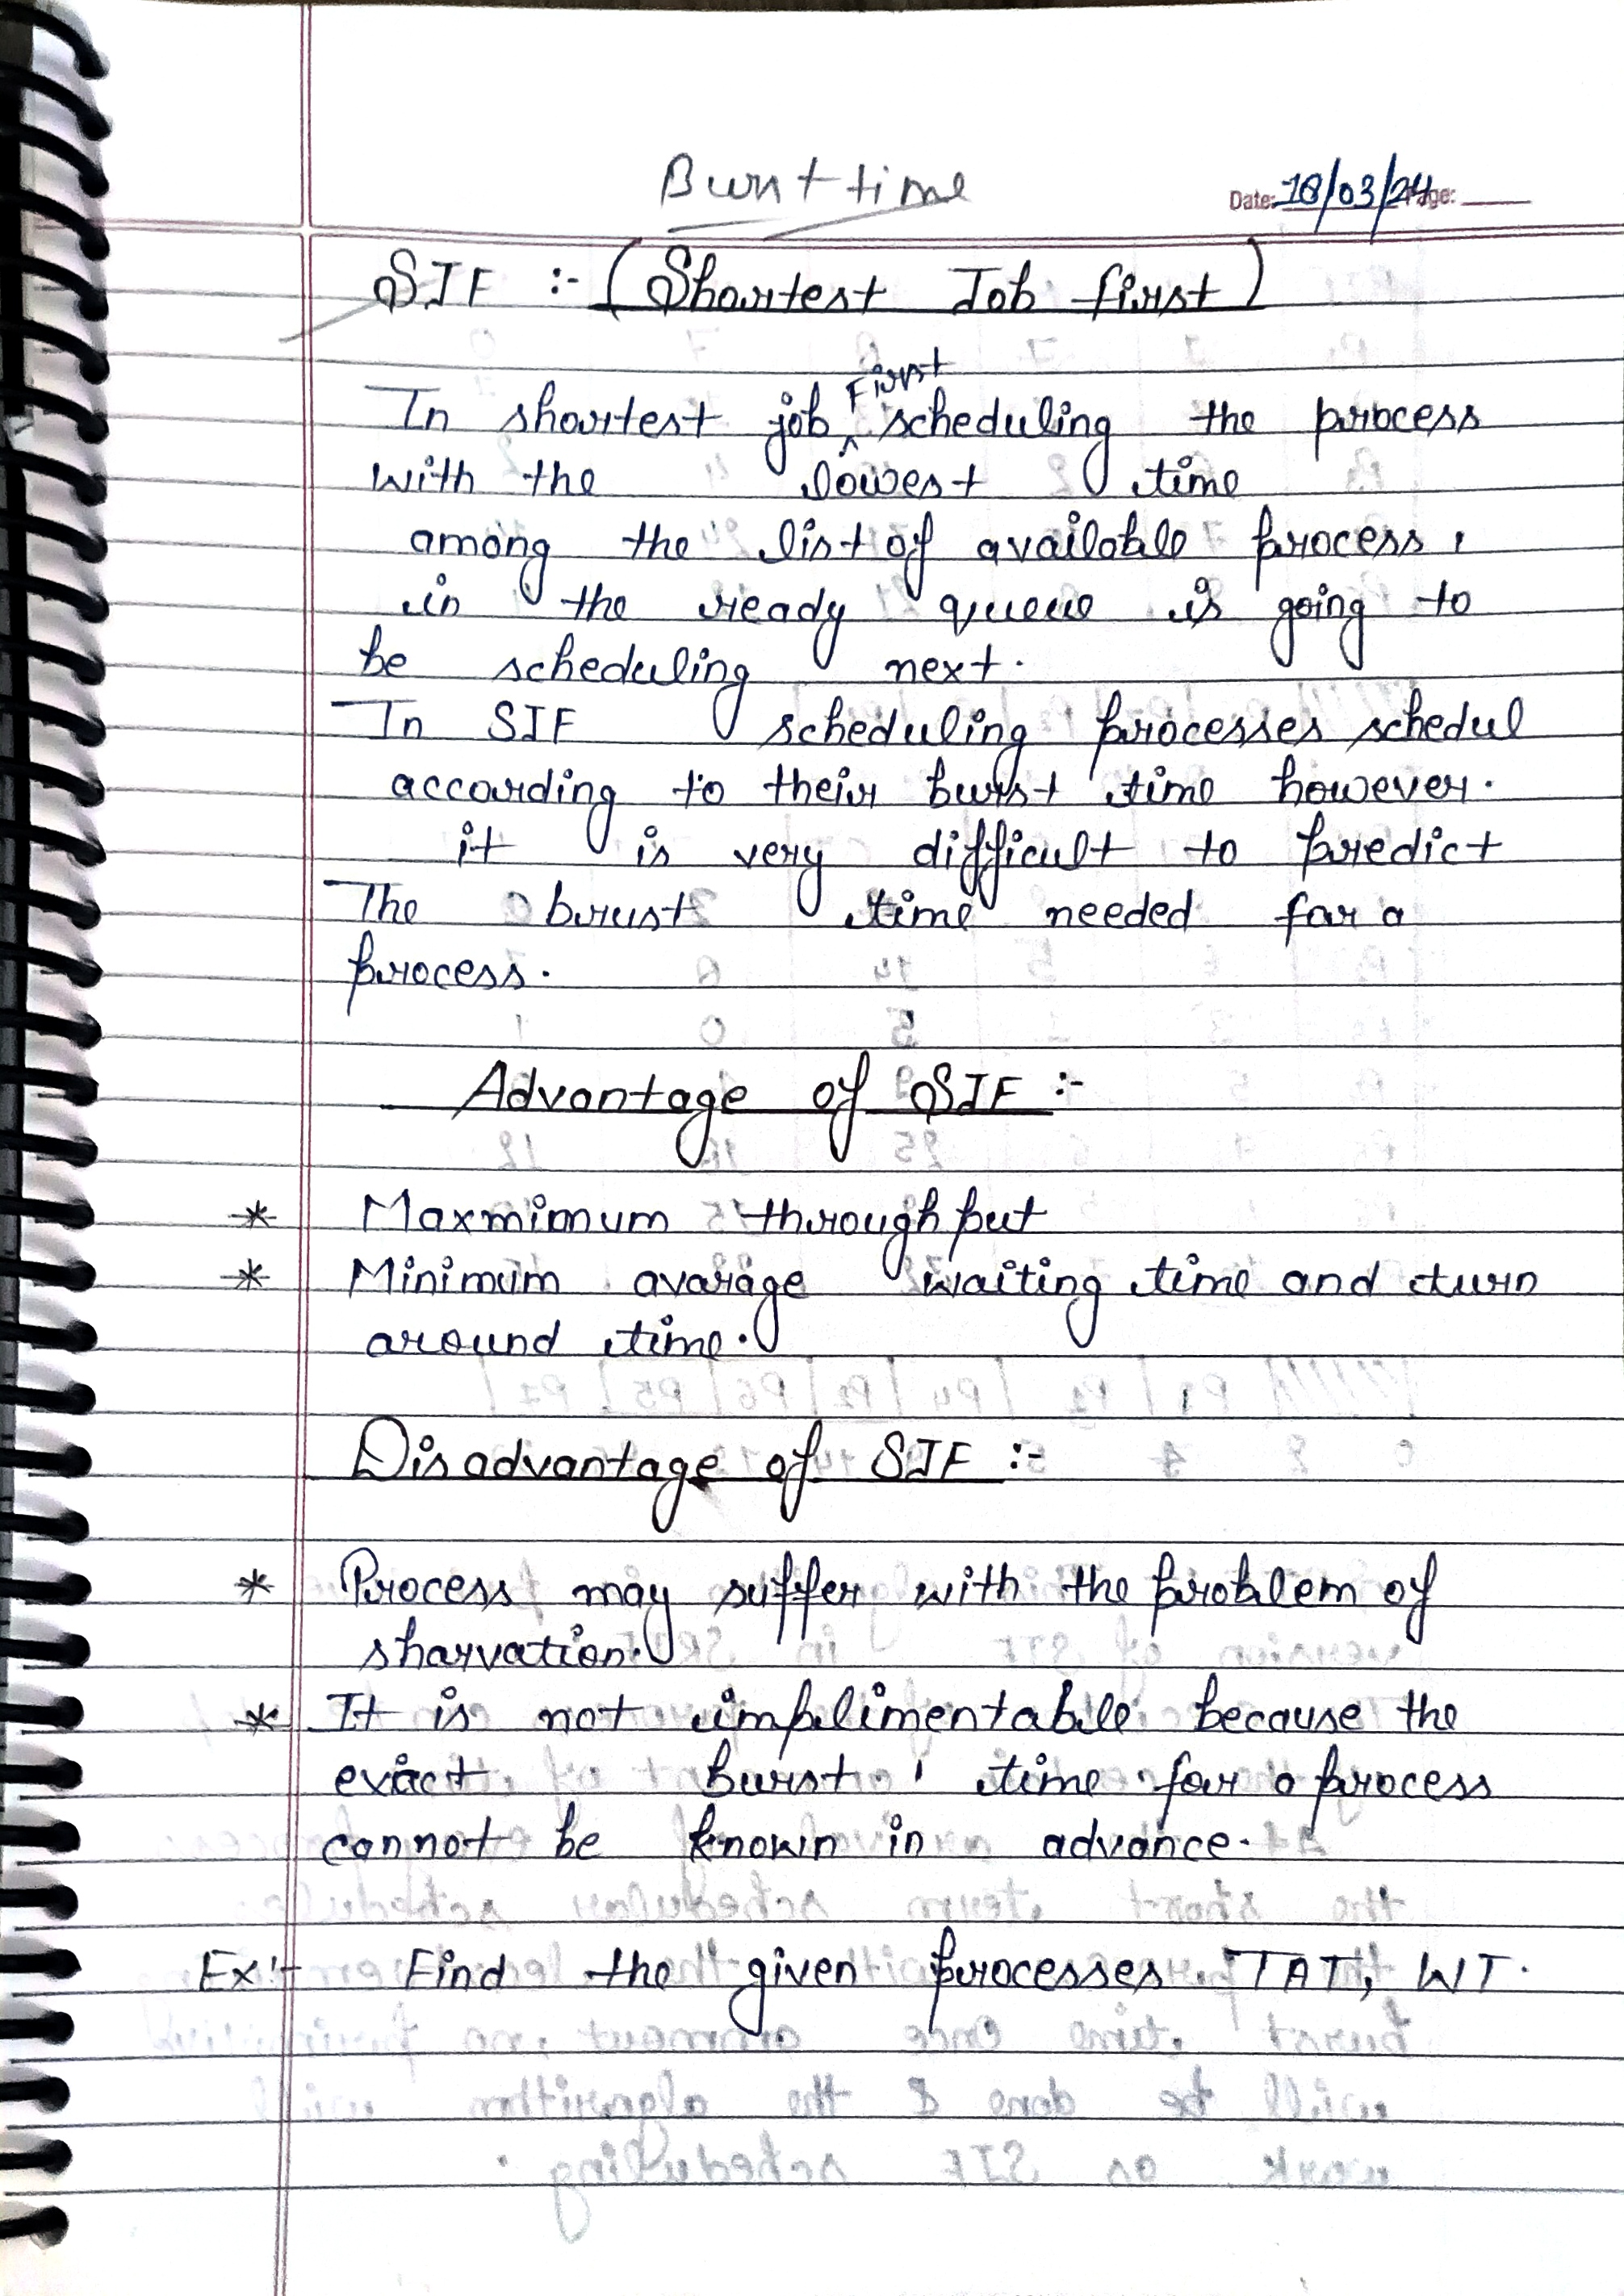 Burst time
Date: 18/03/24 Page:
SJF :- (Shortest Job first)
In shortest job First scheduling the process
with the lowest time
among the list of available process,
in the ready queue is going to
be scheduling next.
In SJF scheduling processes schedul
according to their burst time however.
it is very difficult to predict
The brust time needed for a
process.
Advantage of SJF :-
* Maxmimum throughput
* Minimum avarage waiting time and turn
around time.
Disadvantage of SJF :-
* Process may suffer with the problem of
sharvation.
* It is not implimentable because the
exact burst time for a process
cannot be known in advance.
Ex:- Find the given processes TAT, WT.